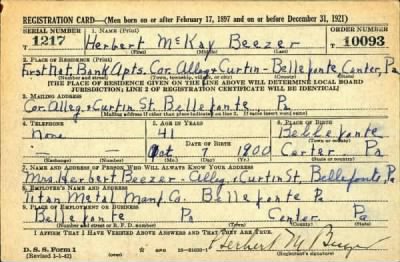 REGISTRATION CARD—(Men born on or after February 17, 1897 and on or before December 31, 1921)
SERIAL NUMBER 1. NAME (Print) ORDER NUMBER
1217 Herbert McKay Beezer 10093
(First) (Middle) (Last)
2. PLACE OF RESIDENCE (Print)
First Nat. Bank Apts. Cor. Alleg + Curtin - Bellefonte Center, Pa
(Number and street) (Town, township, village, or city) (County) (State)
[THE PLACE OF RESIDENCE GIVEN ON THE LINE ABOVE WILL DETERMINE LOCAL BOARD
JURISDICTION; LINE 2 OF REGISTRATION CERTIFICATE WILL BE IDENTICAL]
3. MAILING ADDRESS
Cor. Alleg + Curtin St. Bellefonte, Pa
[Mailing address if other than place indicated on line 2. If same insert word same]
4. TELEPHONE 5. AGE IN YEARS 6. PLACE OF BIRTH
None 41 Bellefonte
DATE OF BIRTH (Town or county)
— — Oct 7 1900 Center. Pa
(Exchange) (Number) (Mo.) (Day) (Yr.) (State or country)
7. NAME AND ADDRESS OF PERSON WHO WILL ALWAYS KNOW YOUR ADDRESS
Mrs. Herbert Beezer - Alleg. + Curtin St, Bellefonte, Pa
8. EMPLOYER'S NAME AND ADDRESS
Titan Metal Manf. Co. Bellefonte Pa
9. PLACE OF EMPLOYMENT OR BUSINESS
Bellefonte Pa Center. Pa
(Number and street or R. F. D. number) (Town) (County) (State)
I AFFIRM THAT I HAVE VERIFIED ABOVE ANSWERS AND THAT THEY ARE TRUE.
D. S. S. Form 1
(Revised 1-1-42) Herbert M Beezer
(Registrant's signature)